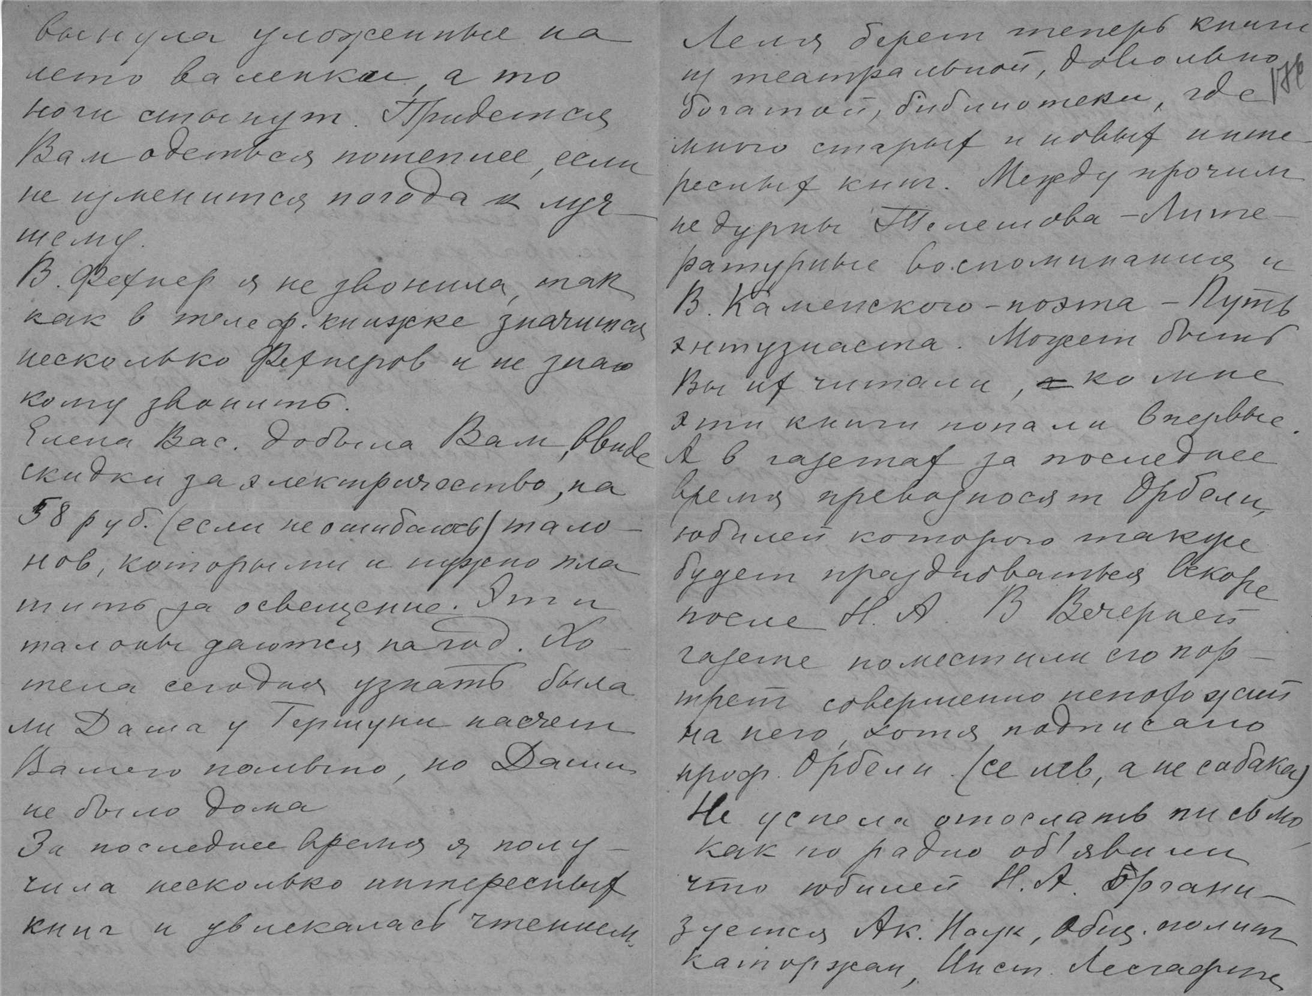 вынула уложенные на
лето валенки, а то
ноги стынут. Придется
Вам одеться потеплее, если
не изменится погода к луч-
шему.
В. Фехнер я не звонила, так
как в телеф. книжке значится
несколько Фехнеров и не знаю
кому звонить.
Елена Вас. добыла Вам, ввиде
скидки за электричество, на
58 руб. (если не ошибаюсь) тало-
нов, которыми и нужно пла
тить за освещение. Эти
талоны даются на год. Хо-
тела сегодня узнать была
ли Даша у Гершуни насчет
Вашего пальто, но Даши
не было дома
За последнее время я полу-
чила несколько интересных
книг и увлекалась чтением.
Леля берет теперь книги
из театральной, довольно
богатой, библиотеки, где
176
много старых и новых инте-
ресных книг. Между прочим
недурны Телешова - Лите-
ратурные воспоминания и
В. Каменского - поэта - Путь
энтузиаста. Может быть
Вы их читали, ко мне
эти книги попали впервые.
А в газетах за последнее
время превозносят Орбели,
юбилей которого также
будет праздноваться вскоре
после Н. А. В Вечерней
газете поместили его пор-
трет совершенно непохожий
на него, хотя подписано
проф. Орбели. (се лев, а не собака)
Не успела отослать письмо,
как по радио об'явили
что юбилей Н. А. Органи-
зуется Ак. Наук, Общ. полит
каторжан, Инст. Лесгафта,